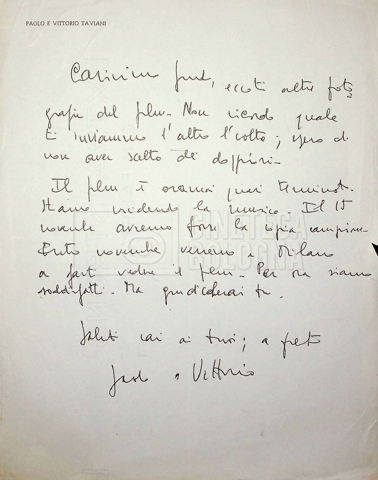 PAOLO E VITTORIO TAVIANI
Carissimo, eccoti altre foto
grafie del film - Non ricordo quale
ti inviammo l'altra volta; spero di
non aver scelto dei doppioni -
Il film è oramai quasi terminat
la musica. Il 15
novembre avremo forse la copia campione
Entro novembre verremo a Milano
a farti vedere il film - Per ora siamo
soddisfatti. Ma giudicherai tu.
Saluti cari ai tuoi; a presto
Paolo e Vittorio
CINETECA
BOLOGNA